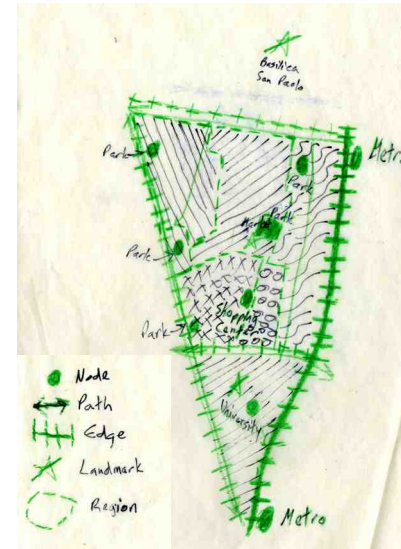 Basilica
San Paolo
Metro
Park
Park
Park
Market
Park
Shopping
Center
Park
University
Metro
Node
Path
Edge
Landmark
Region